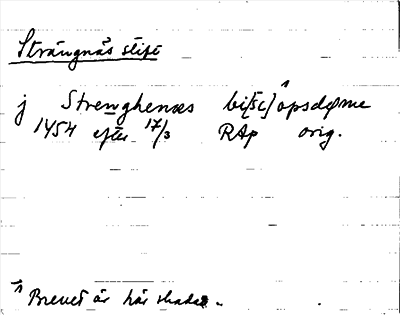 Strängnäs stift
j Strenghenæs bi[sc]^1)opsdøme
1454 efter 17/3 RAp orig.
1) Brevet är här skadat.